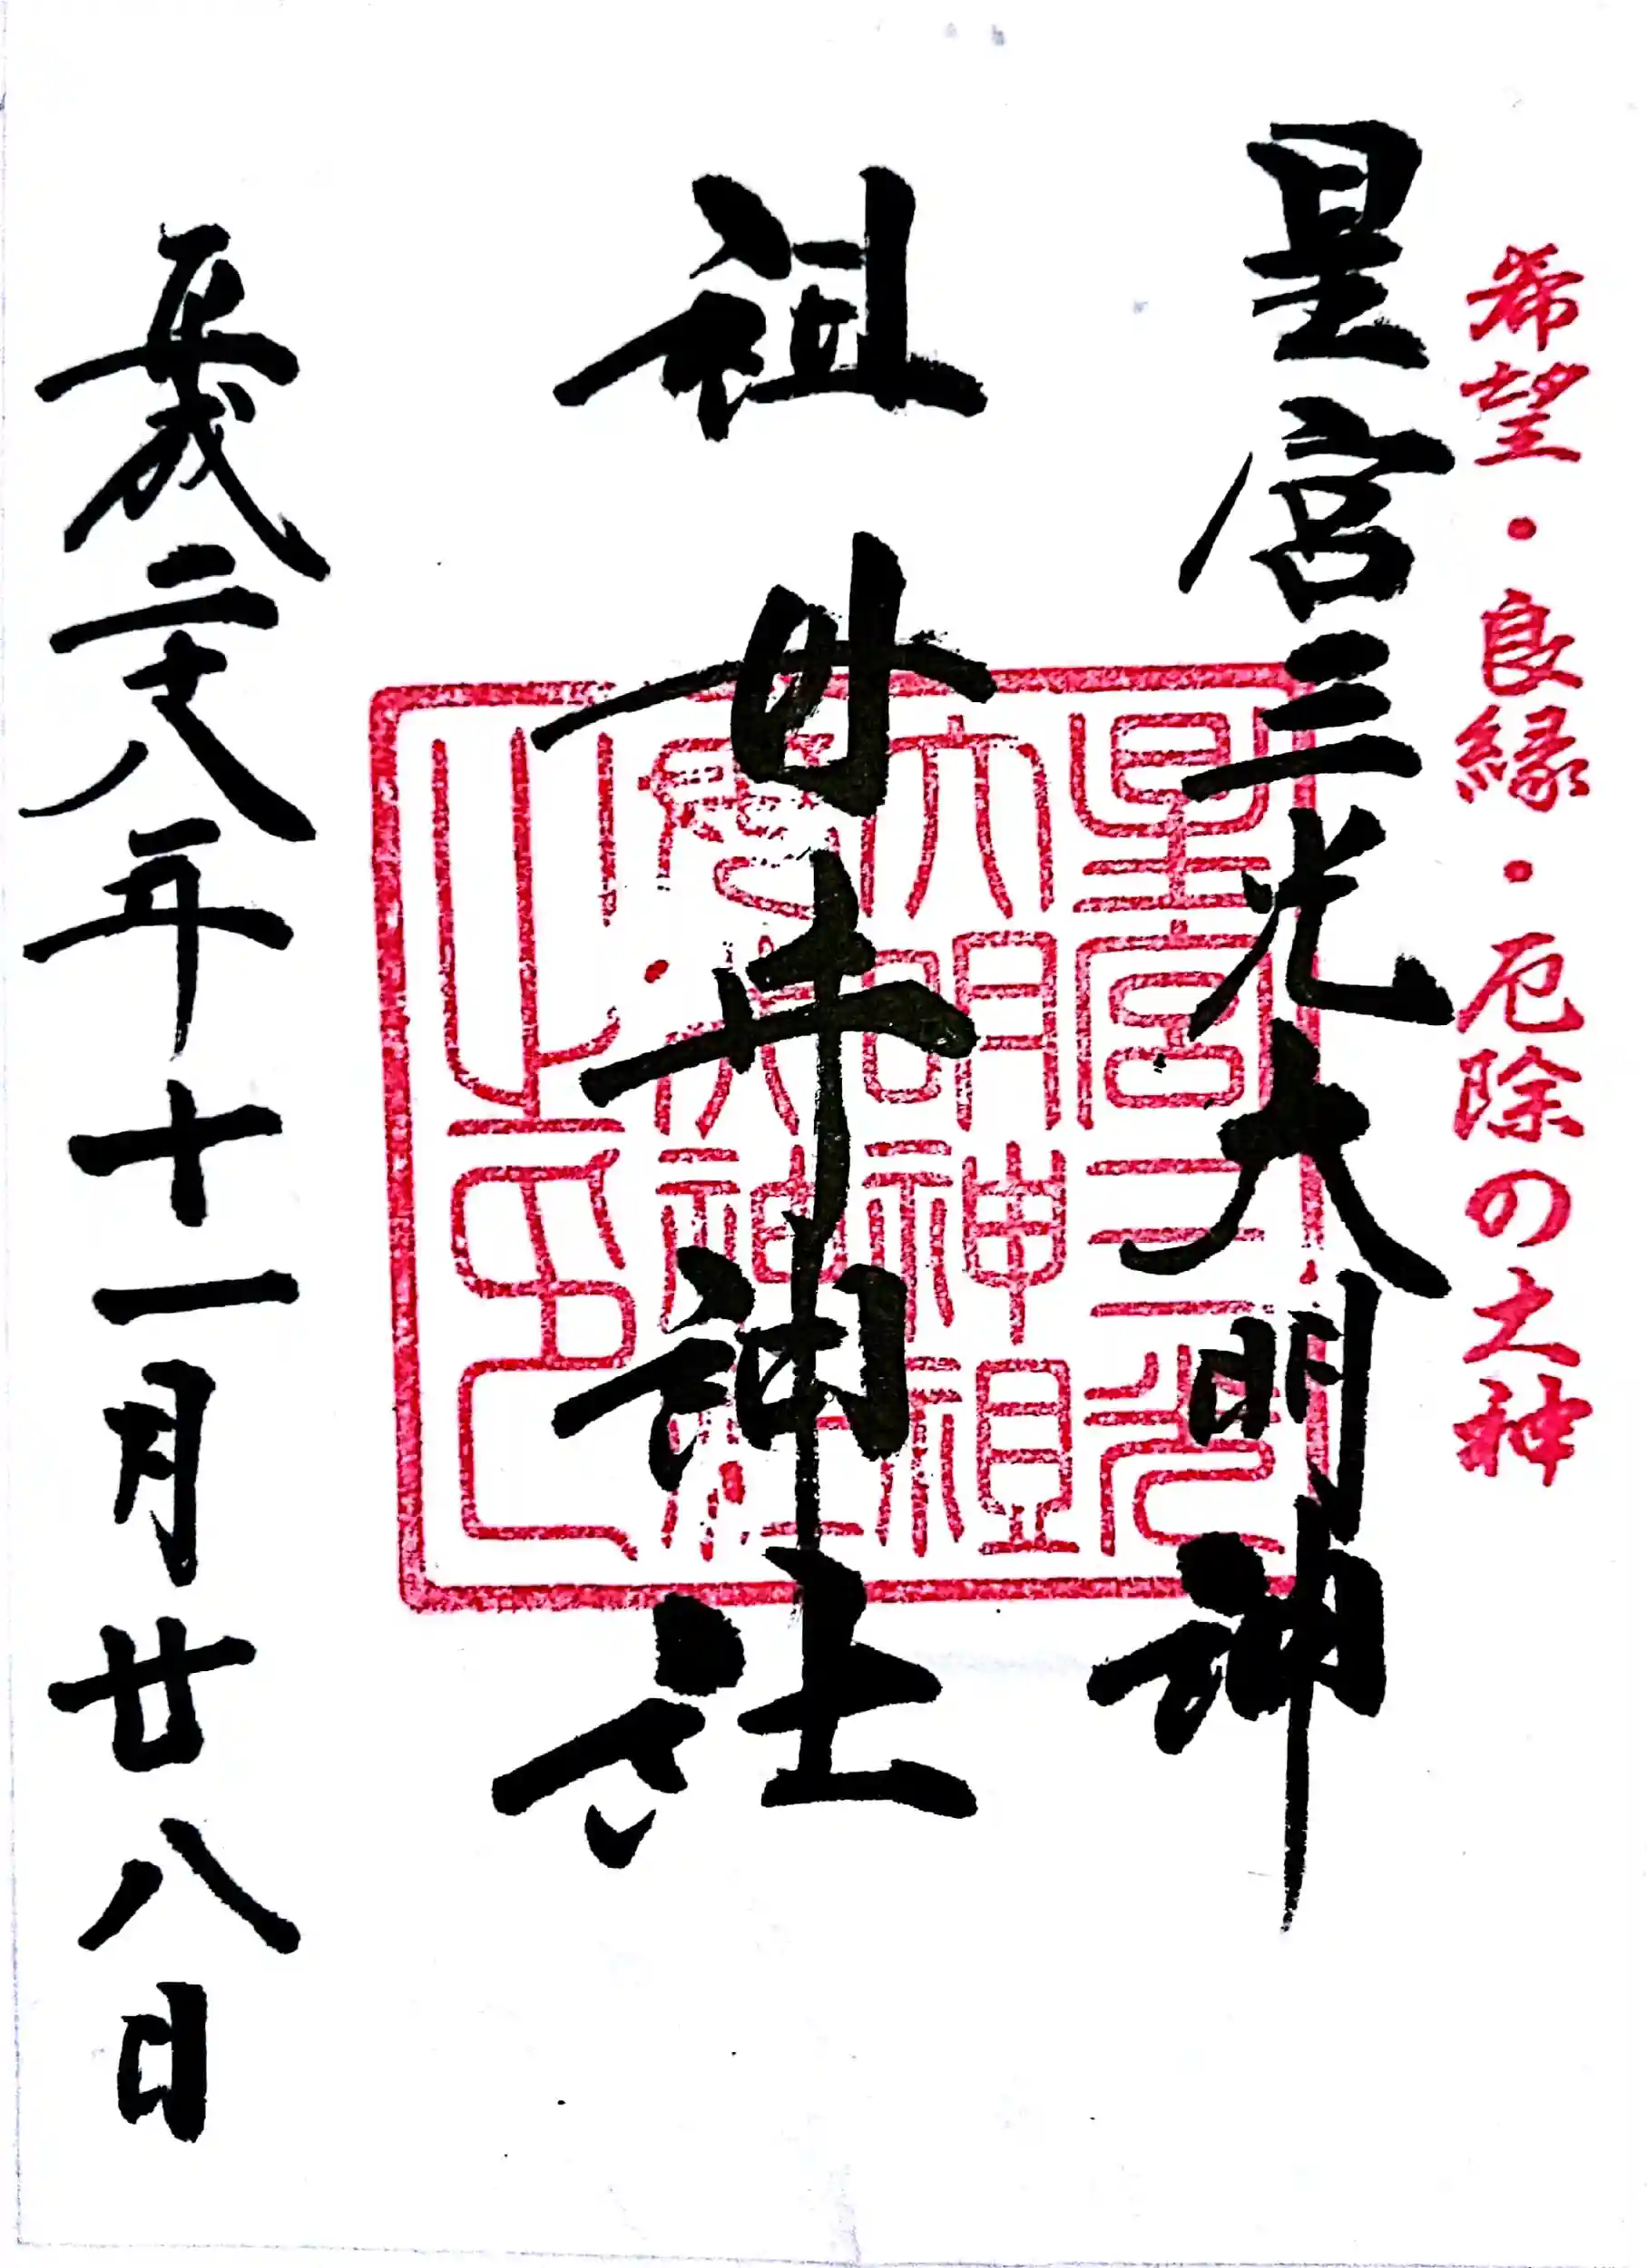 希望・良縁・厄除の大神
星宮三光大明神
祖母井神社
平成二十八年十一月廿八日
星宮三光
大明神祖
神社
之印